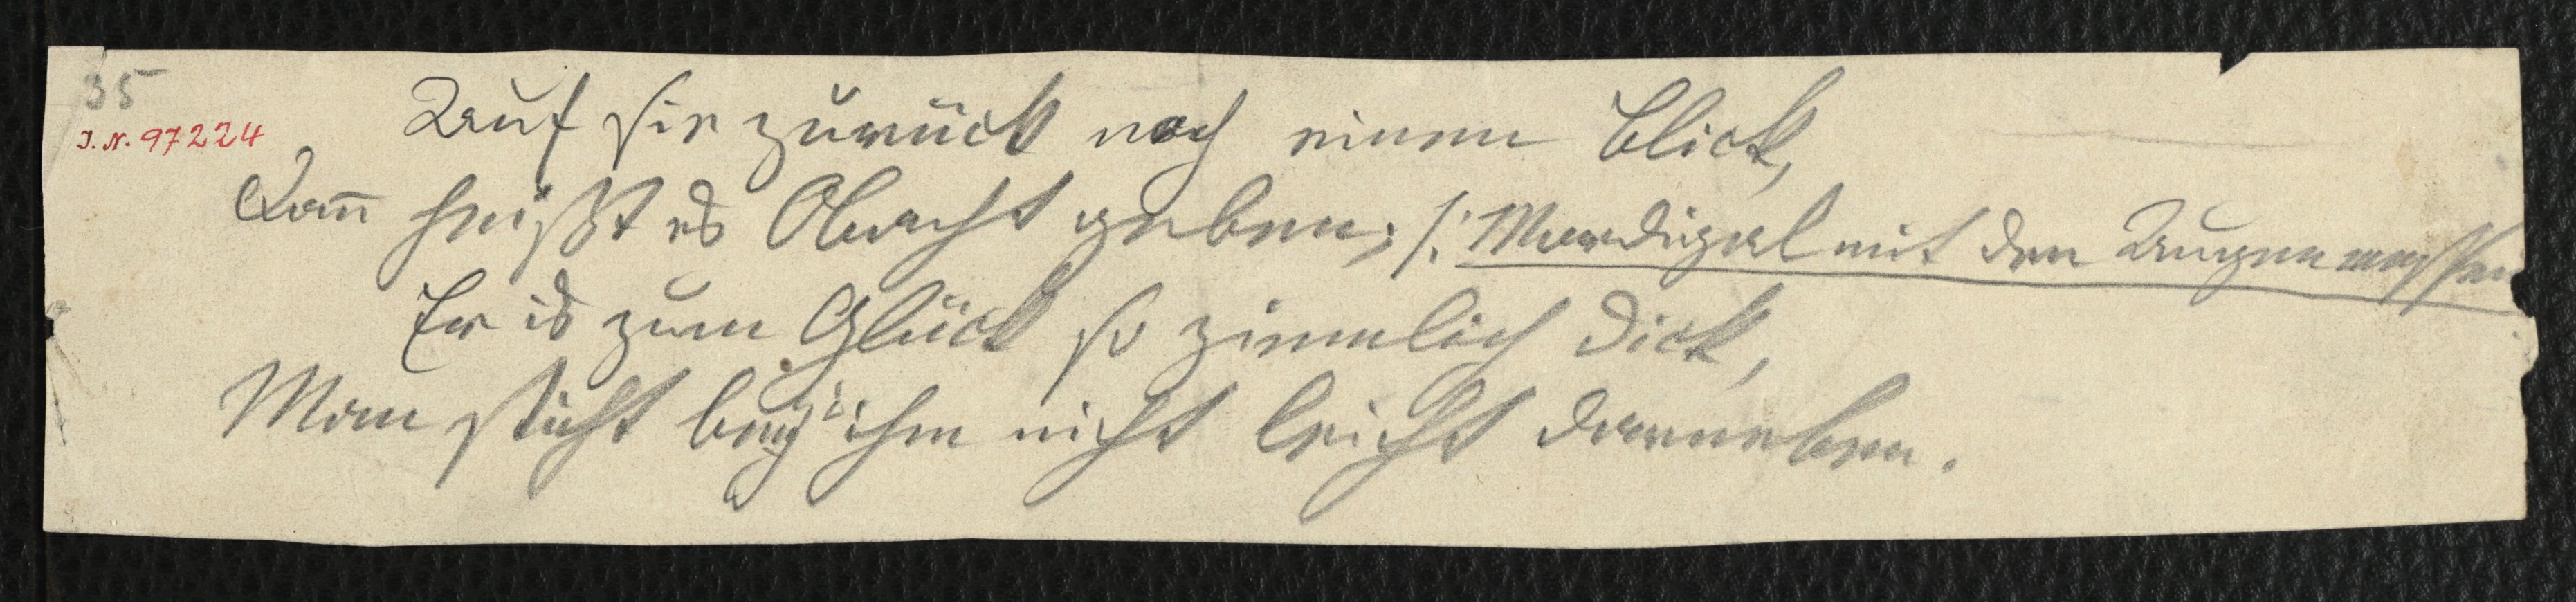 35
I. N. 97224
Auf sie zurück noch einen Blick,
Dañ heißt es Obacht geben; /: Mardigal mit den Augen messen
Er is zum Glück so ziemlich dick,
Man sticht bey ihm nicht leicht darneben.